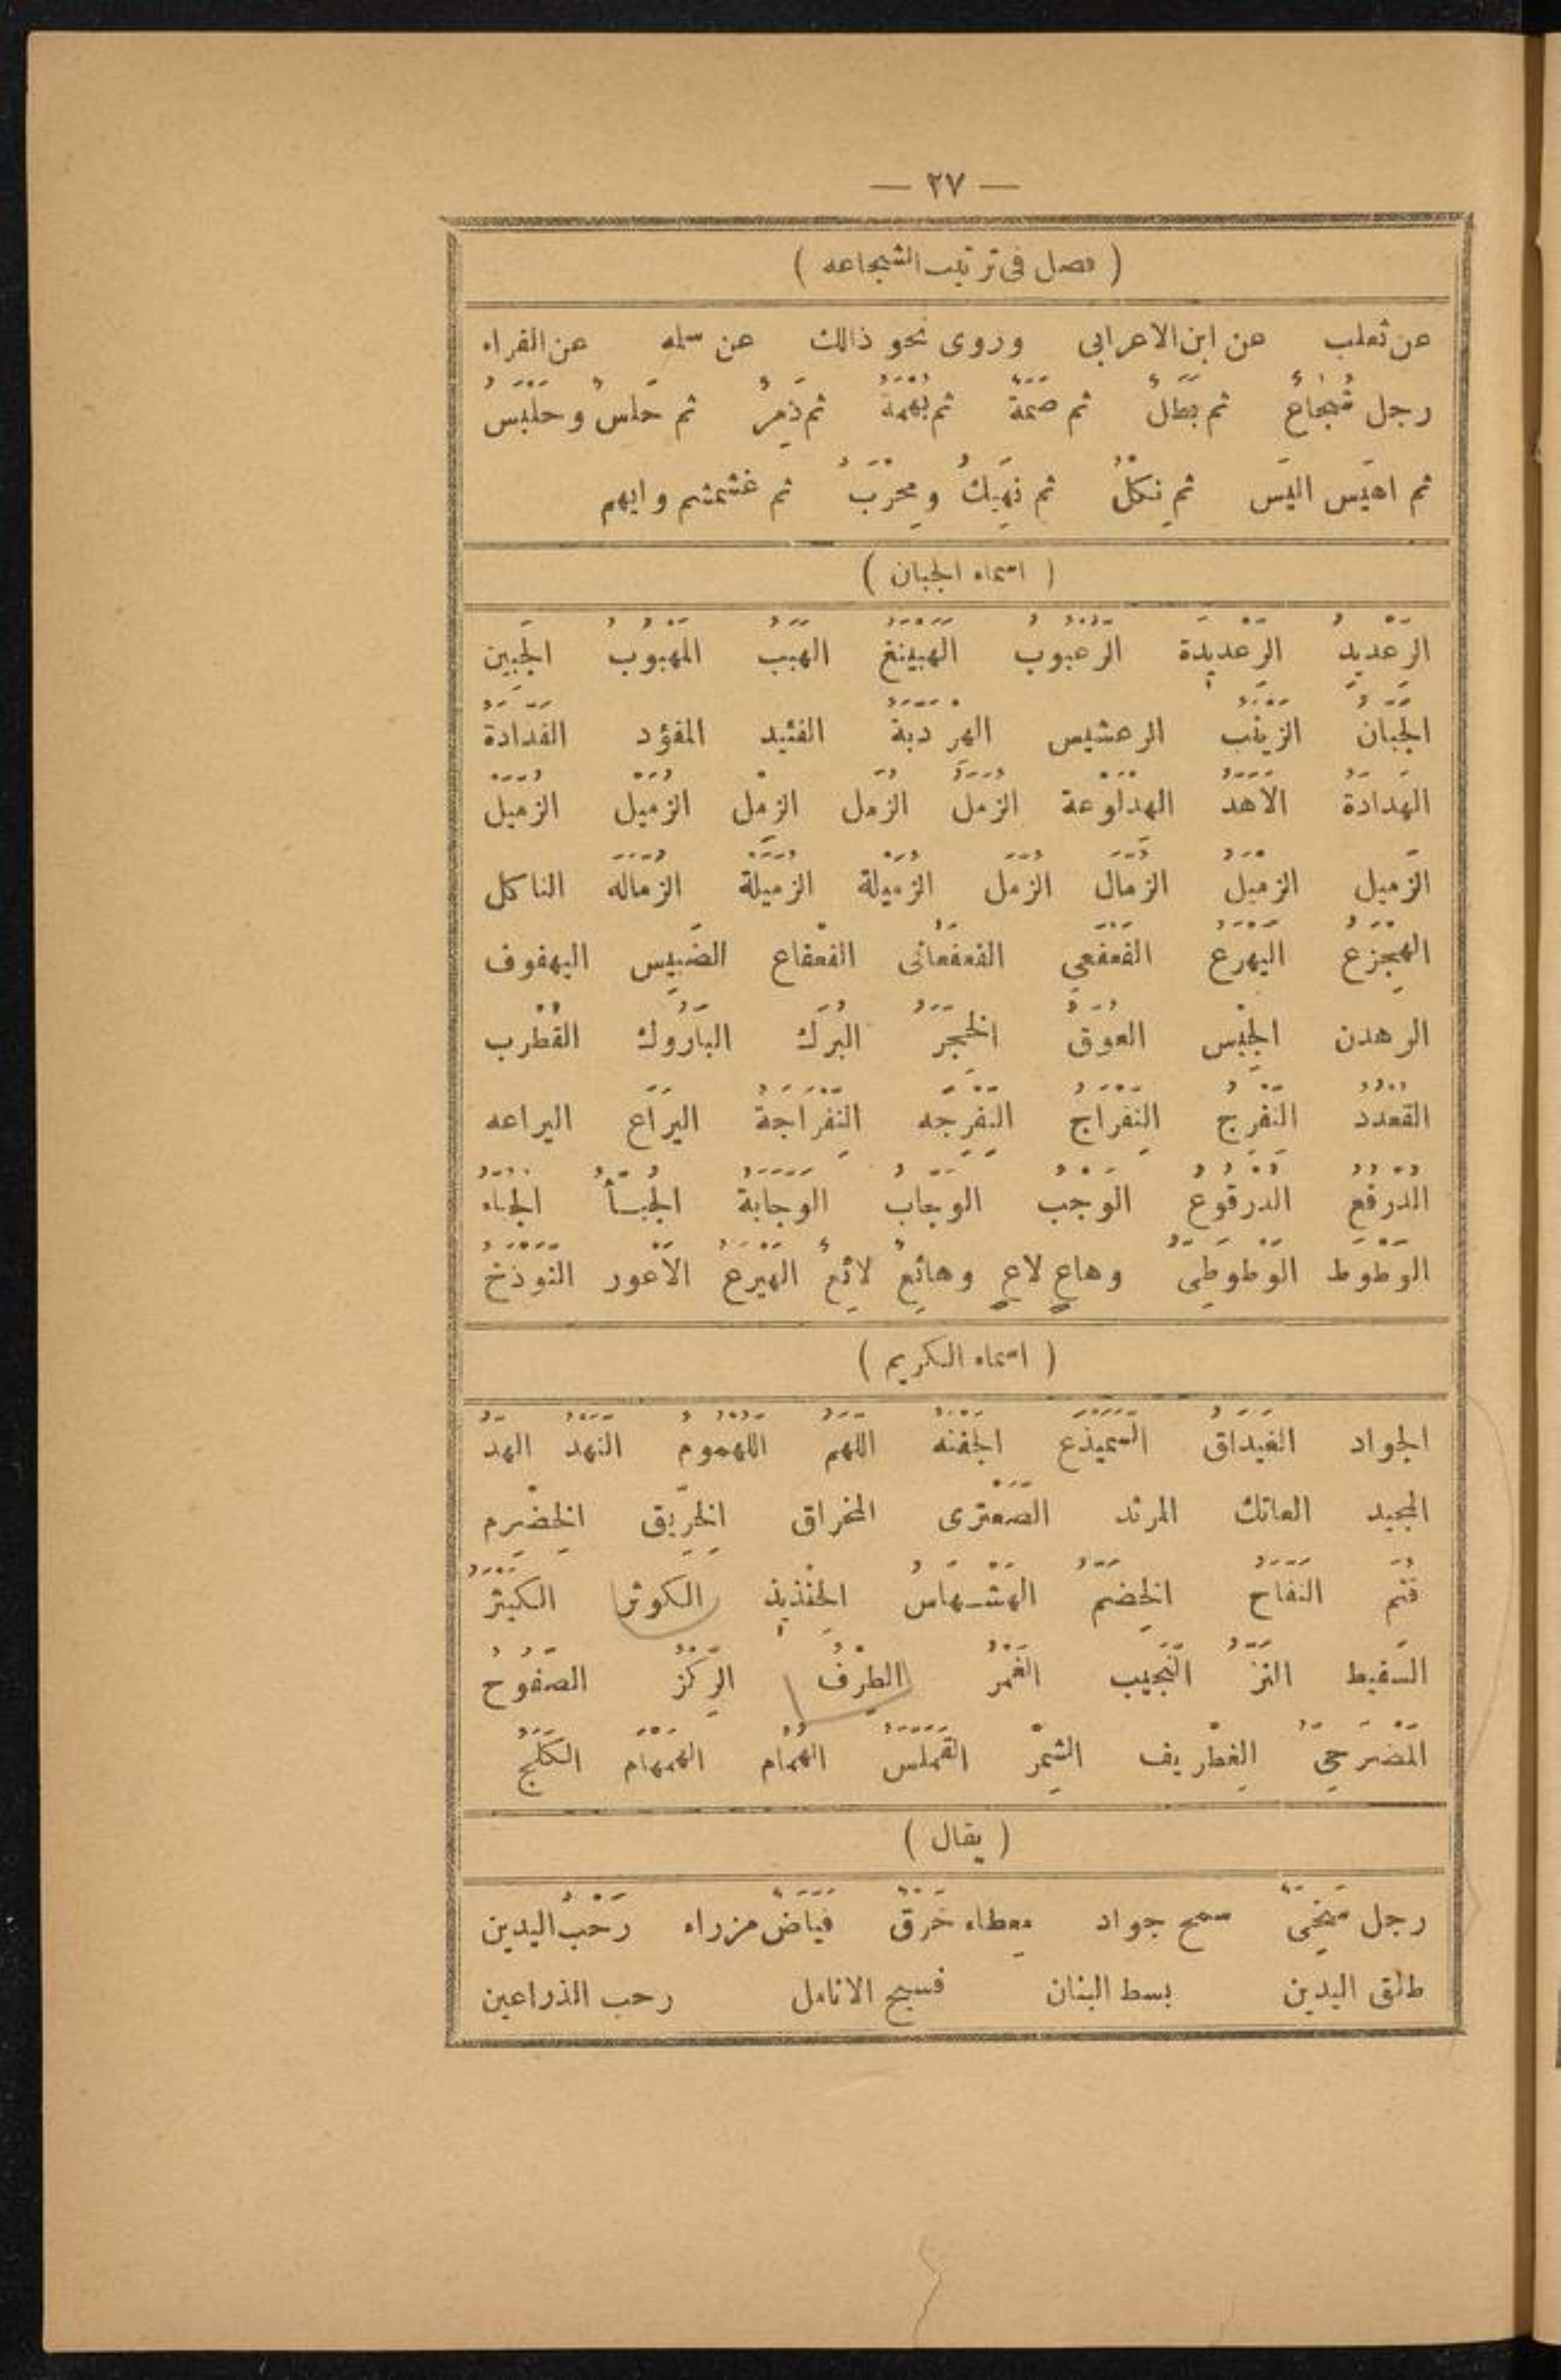 — ٢٧ —
( فصل فى ترتيب الشجاعه )
عن ثعلب عن ابن الاعرابى وروى نحو ذالك عن سلمه عن الفراء
رجل شُجَاعٌ ثم بَطَلٌ ثم صِمَّةٌ ثم بُهْمَةٌ ثم ذَمِرٌ ثم حَلِسٌ وحَلْبَسٌ
ثم اهيَس اليَس ثم نِكْلٌ ثم نَهِيكٌ ومِحْرَبٌ ثم غشمشم وايهم
( اسماء الجبان )
الرِعْديدِ الرِعْديدَة الرعبوب الهَبَيْنَغ الهبب المَهْبُوبُ الجَبين
الجَبَانُ الزينب الرعشيس الهِردبة الفئيد المفؤد الفدادة
الهَدادَةُ الاهد الهدلوعة الزمل الزمل الزِمْل الزميل الزميل
الزَميل الزميل الزمال الزمل الزميلة الزميلة الزماله الناكل
الهِجْزَع اليهرع الفعفعي الفعفعانى الفعفاع الضَبِيس اليهفوف
الرهدن الجِبْس العوَق الخِجِر البُرَك البَارُوك القُطْرب
القُعْدُدُ النِفْرِجُ النِفْرَاجُ النِفْرِجَه النِفْرَاجَةُ اليَرَاع اليراعه
الدُرْقُعُ الدُرْقُوعُ الوَجْبُ الوَجَّابُ الوَجَّابَةُ الجُبَّأُ الجباء
الوَطْوَط الوَطْوطِىّ وهاعٍ لاعٍ وهائِعٌ لائِعٌ الهَيْرَعُ الاَعْور النوذخ
( اسماء الكريم )
الجواد الغَيداقُ السَمَيْذَع الجفنه اللهم اللهموم النهد الهدّ
المجيد العاتك المرئد الصَعْترى المخراق الخِرّيق الخِضْرِم
قثم النفاح الخِضَمّ الهَشْهَاسُ الخِنْذيذ الكوثر الكيثر
السَفيط النزّ النَجيب الغَمْرُ الطِرْفُ الرِكْزُ الصَفُوحُ
المَضْرَحِىّ الغِطْريف الشِمْرّ القملس الهمام الهمهام الكلج
( يقال )
رجل سَخِىٌّ سمح جواد مِعطاء خَرْقٌ فَيّاضٌ مزراء رَحْبُ اليدين
طلق اليدين بسط البنان فسيح الانامل رحب الذراعين